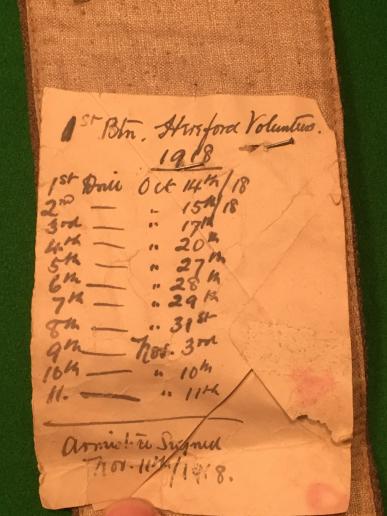 1st Btn. Hereford Volunteers.
1918
1st Drill Oct 14th/18
2nd — " 15th/18
3rd — " 17th
4th — " 20th
5th — " 27th
6th — " 28th
7th — " 29th
8th — " 31st
9th — Nov. 3rd
10th — " 10th
11. — " 11th
Armistice Signed
Nov. 11th/1918.